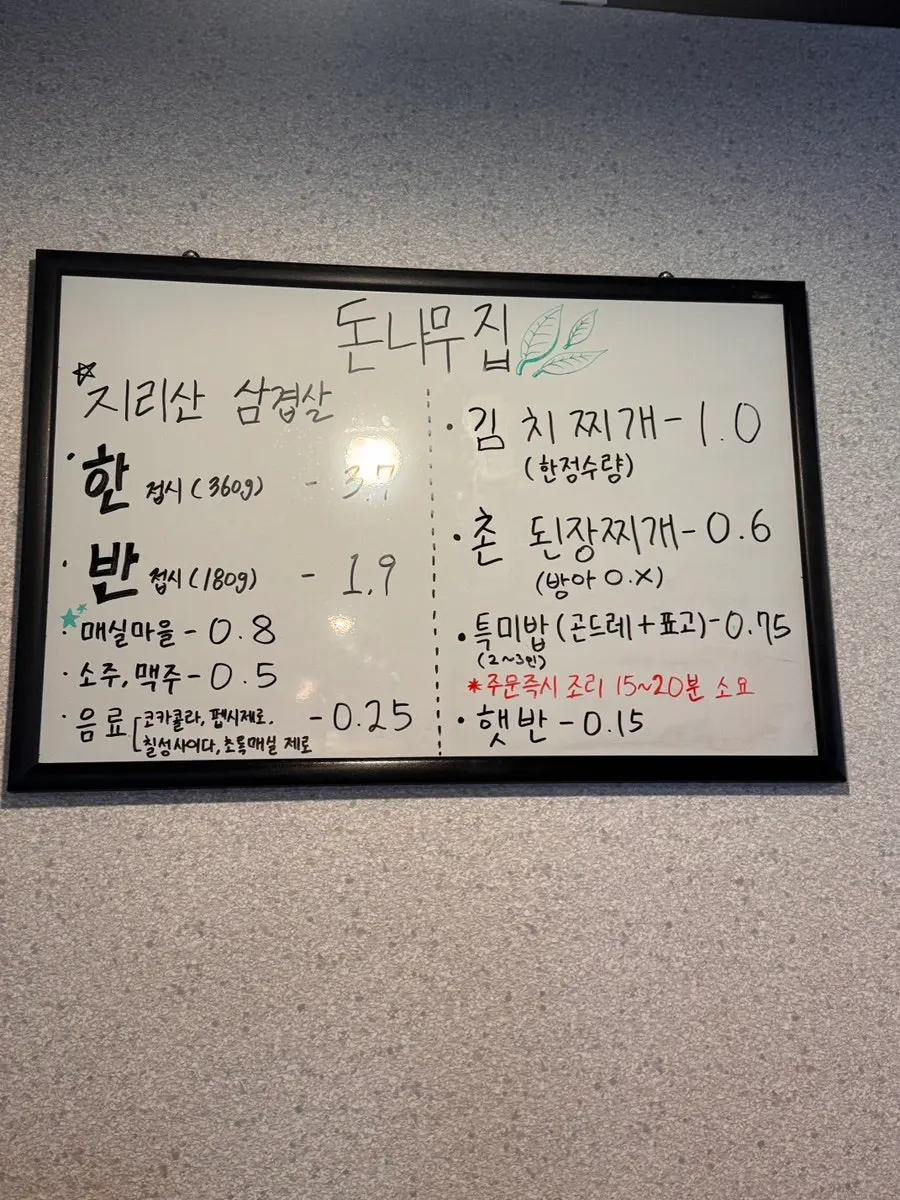 돈나무집
지리산 삼겹살
· 한 접시 (360g) - 3.7
· 반 접시 (180g) - 1.9
· 매실마을 - 0.8
· 소주, 맥주 - 0.5
· 음료 [코카콜라, 펩시제로,
칠성사이다, 초록매실 제로 - 0.25
· 김치찌개 - 1.0
(한정수량)
· 촌 된장찌개 - 0.6
(방아 O.X)
· 특미밥 (곤드레+표고) - 0.75
(2~3인)
*주문즉시 조리 15~20분 소요
· 햇반 - 0.15